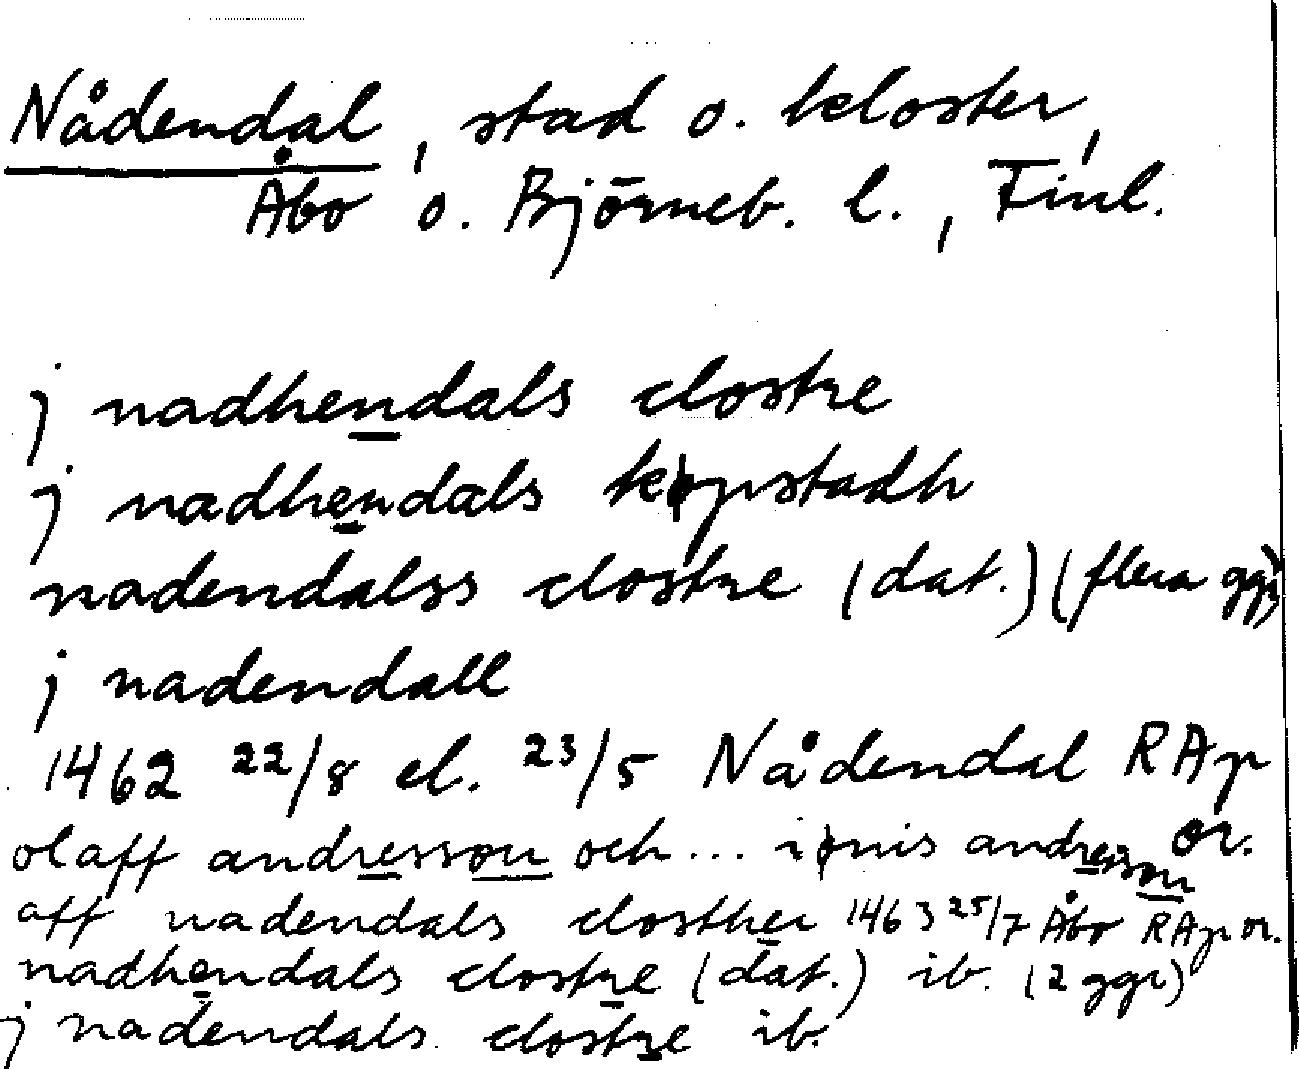 Nådendal, stad o. kloster,
Åbo o. Björneb. l., Finl.
j nadhendals clostre
j nadhendals køpstadh
nadendalss clostre (dat.) (flera ggr)
j nadendall
1462 22/8 el. 23/5 Nådendal RAp or.
olaff andresson och ... iønis andresson
aff nadendals closther 1463 25/7 Åbo RAp or.
nadhendals clostre (dat.) ib. (2 ggr)
j nadendals clostre ib.